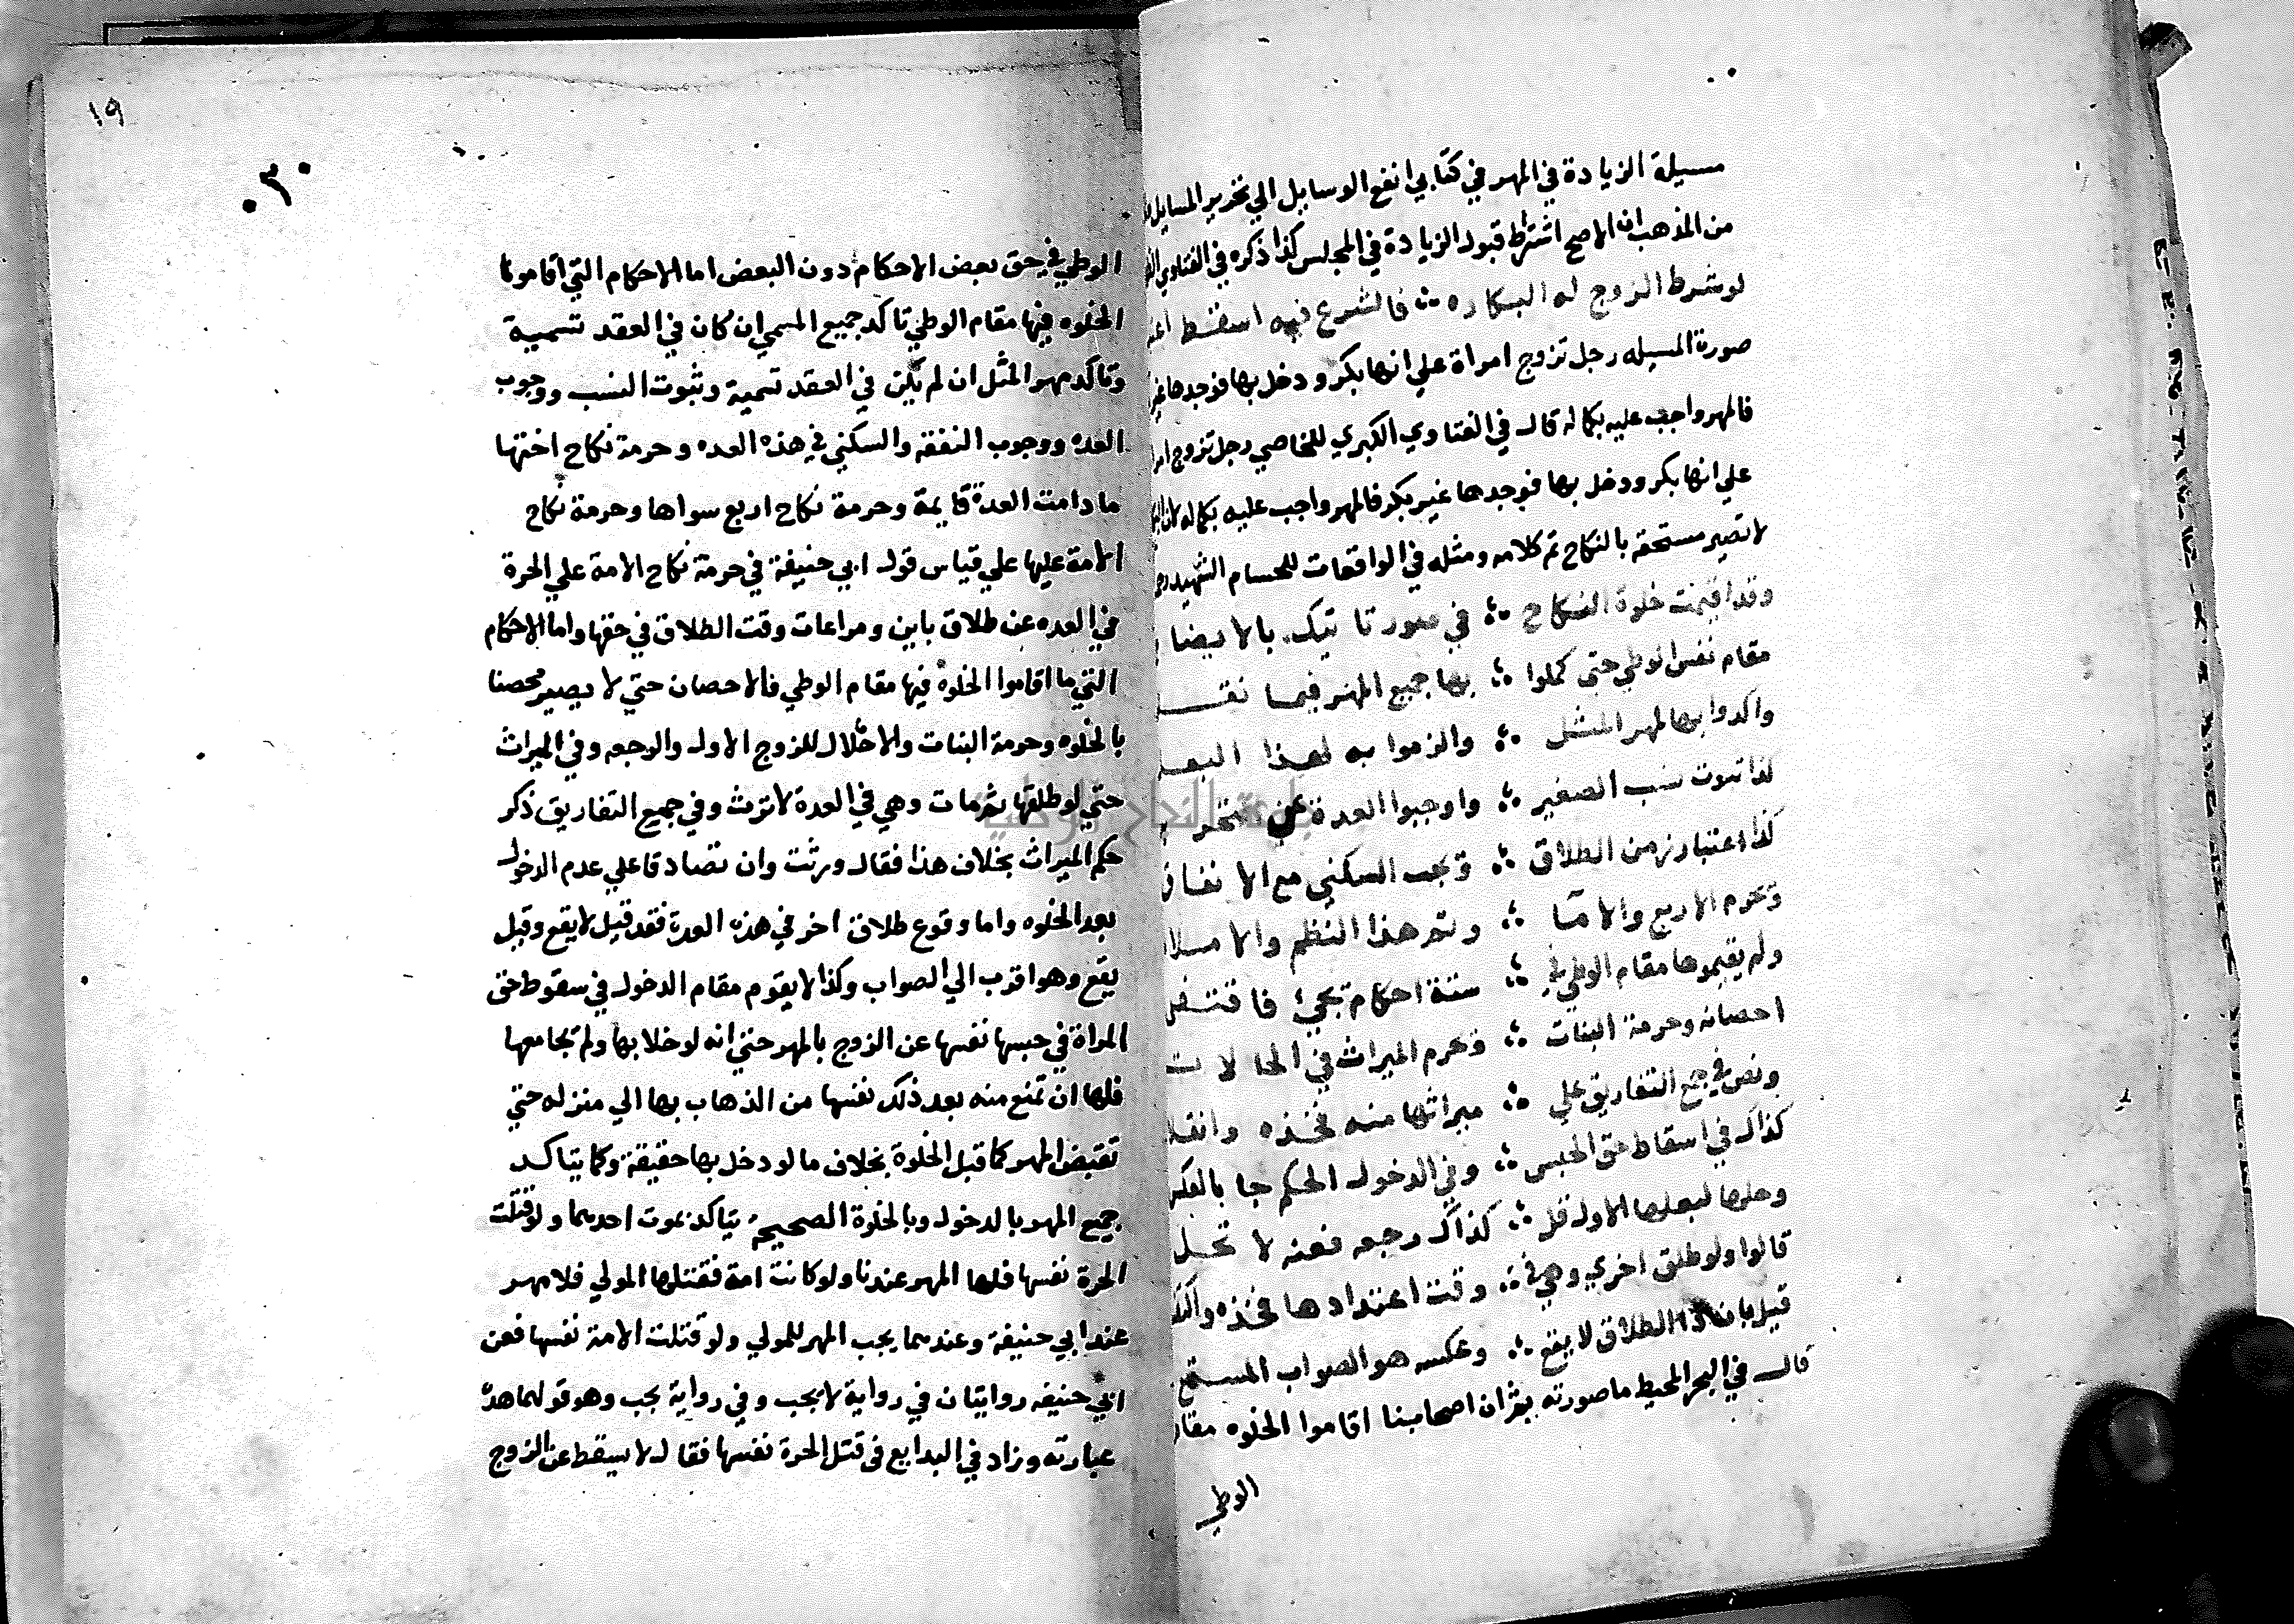 مسيلة الزيادة في المهر في كتابي انفع الوسايل الي تحرير المسايل
من المذهب ان الاصح اشتراط قبول الزيادة في المجلس كذا ذكره في الفتاوي
لو شرط الزوج له البكاره ؞ فالشرع فيه اسقط
صورة المسيله رجل تزوج امراة علي انها بكر ودخل بها فوجدها غير
فالمهر واجب عليه بكماله قال في الفتاوي الكبري للخاصي رجل تزوج
علي انها بكر ودخل بها فوجدها غير بكر فالمهر واجب عليه بكماله لان
لا تصير مستحقه بالنكاح تم كلامه ومثله في الواقعات للحسام الشهيد
وقد اقيمت خلوة النكاح ؞ في صور تاتيك بالايضا
مقام نفس الوطي حتي كملوا ؞ بها جميع المهر فيما
واكدوا بها لمهر المثل ؞ والزموا به لهذا البعل
لذا ثبوت نسب الصغير ؞ واوجبوا العدة عن
كذا اعتبار زمن الطلاق ؞ وتجب السكني مع الانفاق
وتحرم الاربع والامّا ؞ وتم هذا النظم والاملا
ولم يقيموها مقام الوطي في ؞ ستة احكام تجيء فاقتفي
احصانه وحرمة البنات ؞ وتحرم الميراث في الحالات
ونص في جمع التفاريق علي ؞ ميراثها منه فخذه وانقلا
كذاك في اسقاط حق الحبس ؞ وفي الدخول الحكم جا بالعكس
وحلها لبعلها الاول قل ؞ كذاك رجعه فعنه لا تحل
قالوا ولو طلق اخري وهي في ؞ وقت اعتدادها فخذه
قيل بان ذا الطلاق لا يقع ؞ وعكسه هو الصواب
قال في البحر المحيط ما صورته ان اصحابنا اقاموا الخلوه مقام
الوطي
١٩
٣٠
الوطي في حق بعض الاحكام دون البعض اما الاحكام التي اقاموا
الخلوه فيها مقام الوطي تاكد جميع المسمي ان كان في العقد تسمية
وتاكد مهر المثل ان لم يكن في العقد تسمية وثبوت النسب ووجوب
العده ووجوب النفقه والسكني في هذه العده وحرمة نكاح اختها
ما دامت العدة قايمة وحرمة نكاح اربع سواها وحرمة نكاح
الامة عليها علي قياس قول ابي حنيفة في حرمة نكاح الامة علي الحرة
في العده عن طلاق باين ومراعات وقت الطلاق في حقها واما الاحكام
التي ما اقاموا الخلوة فيها مقام الوطي فالاحصان حتي لا يصير محصنا
بالخلوه وحرمة البنات والاحلال للزوج الاول والرجعه وفي الميراث
حتي لو طلقها ثم مات وهي في العدة لا ترث وفي جميع التفاريق ذكر
حكم الميراث بخلاف هذا فقال ورثت وان تصادقا علي عدم الدخول
بعد الخلوه واما وقوع طلاق اخر في هذه العدة فقد قيل لا يقع وقيل
يقع وهو اقرب الي الصواب وكذا لا يقوم مقام الدخول في سقوط حق
المراة في حبسها نفسها عن الزوج بالمهر حتي انه لو خلا بها ولم يجامعها
فلها ان تمنع منه بعد ذلك نفسها من الذهاب بها الي منزله حتي
تقبض المهر كما قبل الخلوة بخلاف ما لو دخل بها حقيقة وكما يتاكد
جميع المهر بالدخول وبالخلوة الصحيحه يتاكد بموت احدهما ولو قتلت
الحرة نفسها فلها المهر عندنا ولو كانت امة فقتلها المولي فلا مهر
عند ابي حنيفة وعندهما يجب المهر للمولي ولو قتلت الامة نفسها فعن
ابي حنيفه روايتان في رواية لا يجب وفي رواية يجب وهو قولهما هذه
عبارته وزاد في البدايع في قتل الحرة نفسها فقال لا يسقط عن الزوج